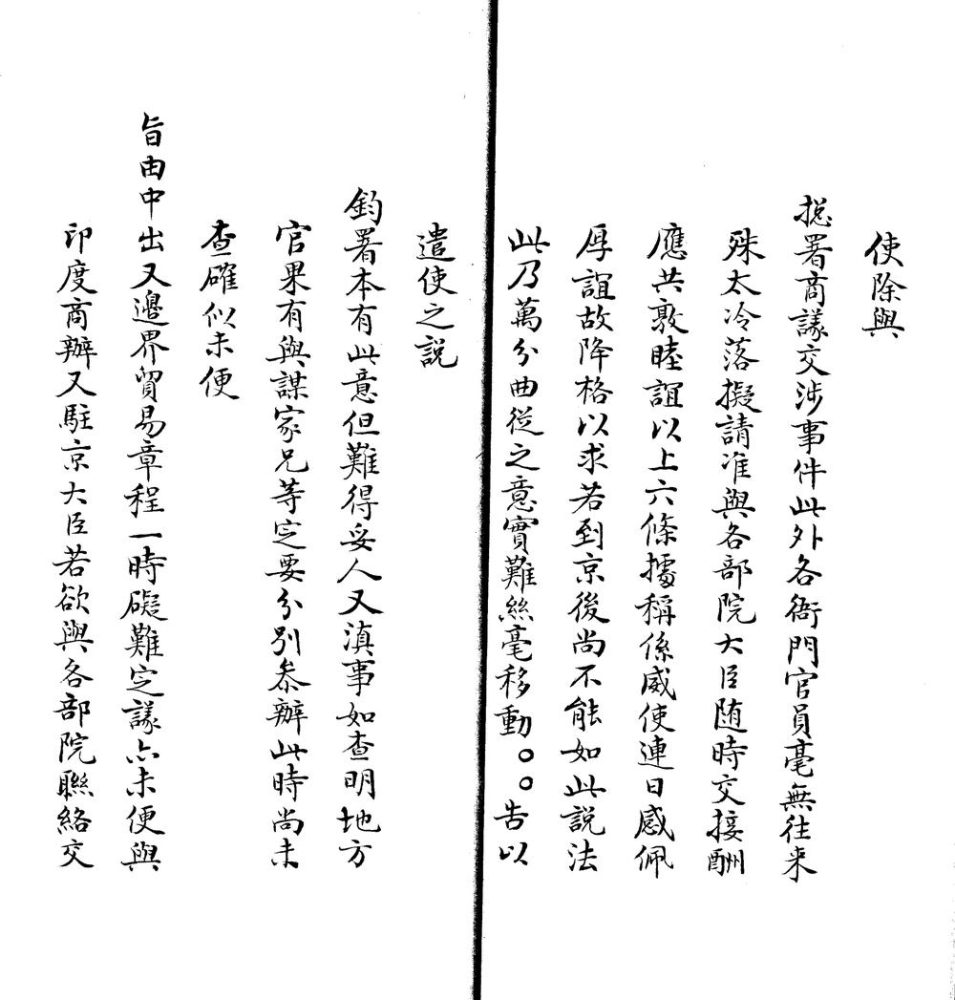 使除與
揔署商議交涉事件此外各衙門官員毫無往来
殊太冷落擬請准與各部院大臣随時交接酬
應共敦睦誼以上六條據稱係威使連日感佩
厚誼故降格以求若到京後尚不能如此説法
此乃萬分曲從之意實難絲毫移動。。告以
遣使之説
鈞署本有此意但難得妥人又滇事如查明地方
官果有與謀家兄等定要分別叅辦此時尚未
查確似未便
旨由中出又邊界貿易章程一時礙難定議亦未便與
印度商辦又駐京大臣若欲與各部院聯絡交